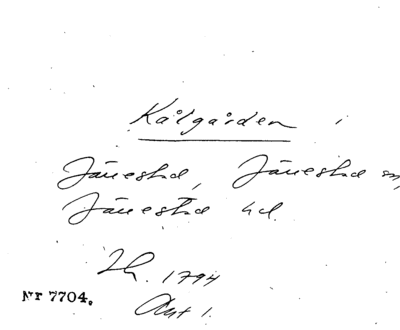 Kålgården i
Järrestad, Järrestad sn,
Järrestad hd.
Lh. 1794
Nr 7704.
Akt 1.